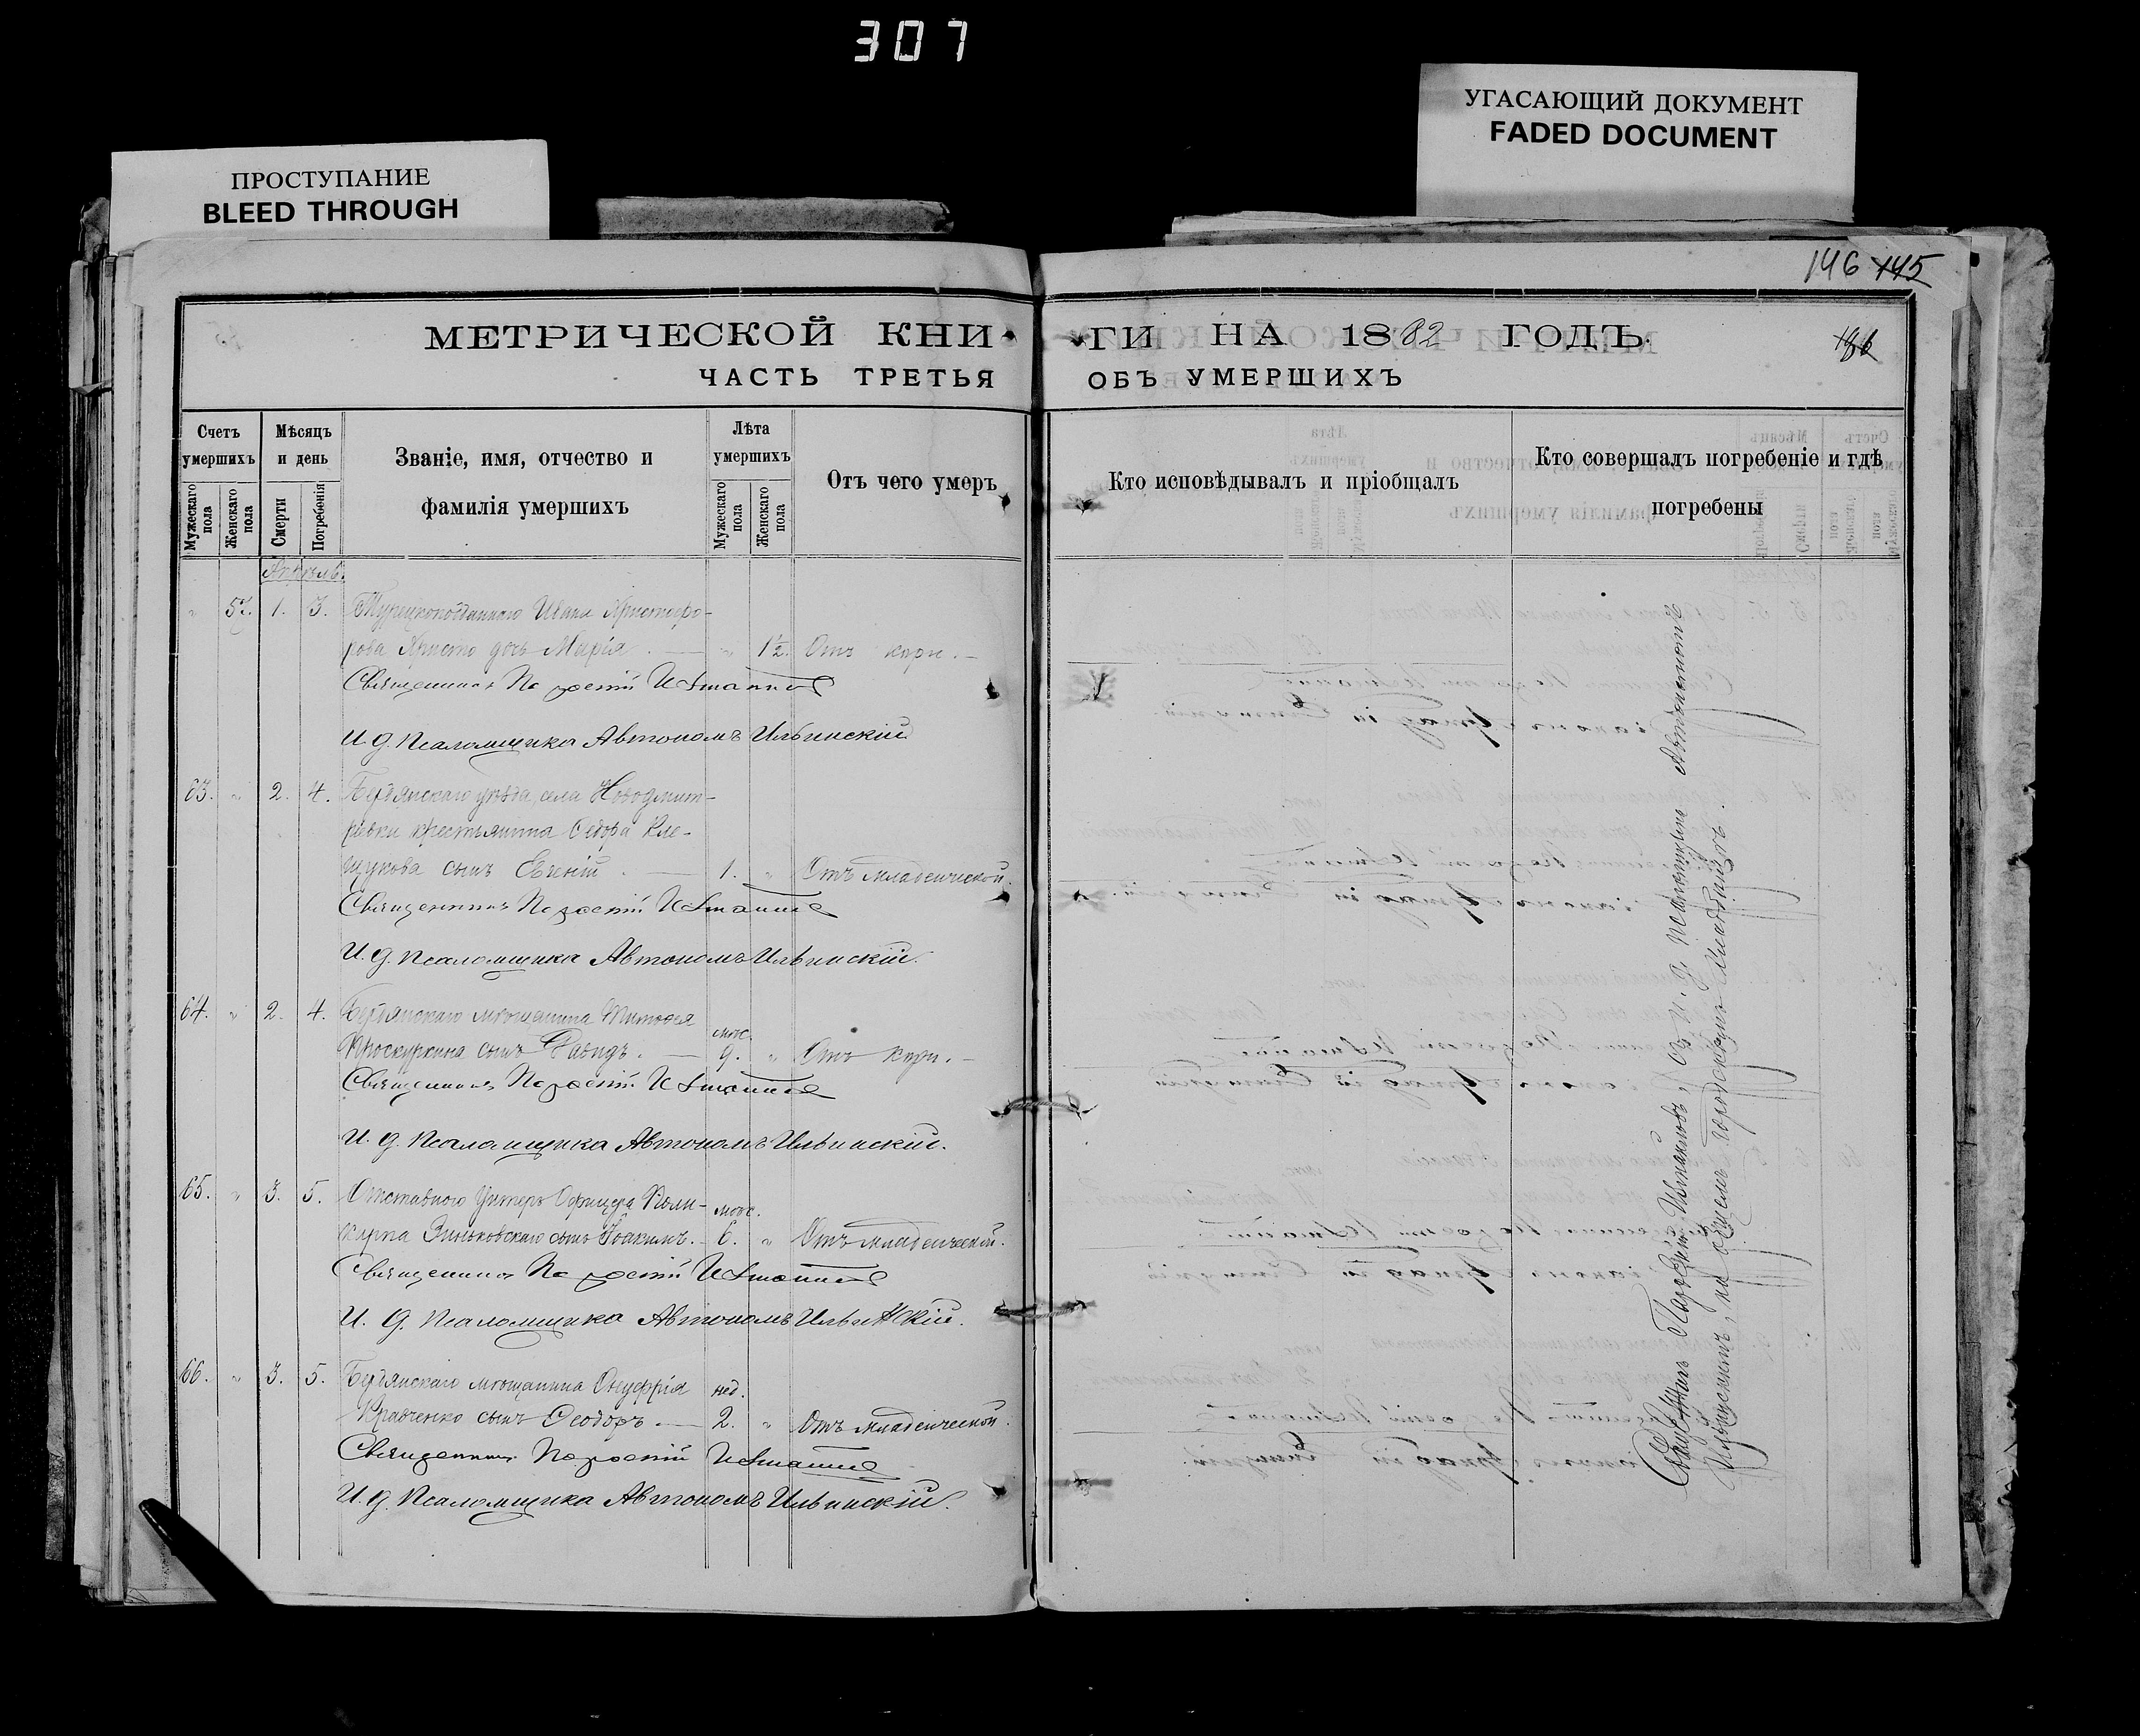 307
УГАСАЮЩИЙ ДОКУМЕНТ
FADED DOCUMENT
ПРОСТУПАНИЕ
BLEED THROUGH
146 145
МЕТРИЧЕСКОЙ КНИ
ЧАСТЬ ТРЕТЬЯ
Счетъ умершихъ
Мужескаго пола
Женскаго пола
Мѣсяцъ и день
Смерти
Погребенія
Званіе, имя, отчество и
фамилія умершихъ
Лѣта умершихъ
Мужескаго пола
Женскаго пола
Отъ чего умеръ
Апрѣль.
" 57. 1. 3. Турецкоподданнаго Ивана Христофо-
рова Христо дочь Марія. — " 1½. Отъ кори. —
Священникъ
И. д. Псаломщика Автономъ Ильинскій
63. " 2. 4. Бердянскаго уѣзда, села Новодмит-
ровки крестьянина Ѳедора Кле-
щукова сынъ Евгеній. — 1. " Отъ младенческой.
Священникъ
И. д. Псаломщика Автономъ Ильинскій.
64. " 2. 4. Бердянскаго мѣщанина Тимоѳея
Проскуркина сынъ Давидъ. — мѣс. 9. " Отъ кори. —
Священникъ
И. д. Псаломщика Автономъ Ильинскій.
65. " 3. 5. Отставного Унтеръ Офицера Поли-
карпа Зиньковскаго сынъ Іоакимъ. — мѣс. 6. " Отъ младенческой.
Священникъ
И. д. Псаломщика Автономъ Ильинскій.
66. " 3. 5. Бердянскаго мѣщанина Онуфрія
Кравченко сынъ Ѳеодоръ. — нед. 2. " Отъ младенческой.
Священникъ
И. д. Псаломщика Автономъ Ильинскій.
ГИ НА 1882 ГОДЪ.
ОБЪ УМЕРШИХЪ
Кто исповѣдывалъ и пріобщалъ
Кто совершалъ погребеніе и гдѣ
погребены
Священникъ съ и. д. псаломщика Автономомъ
Ильинскимъ, на общемъ городскомъ кладбищѣ.